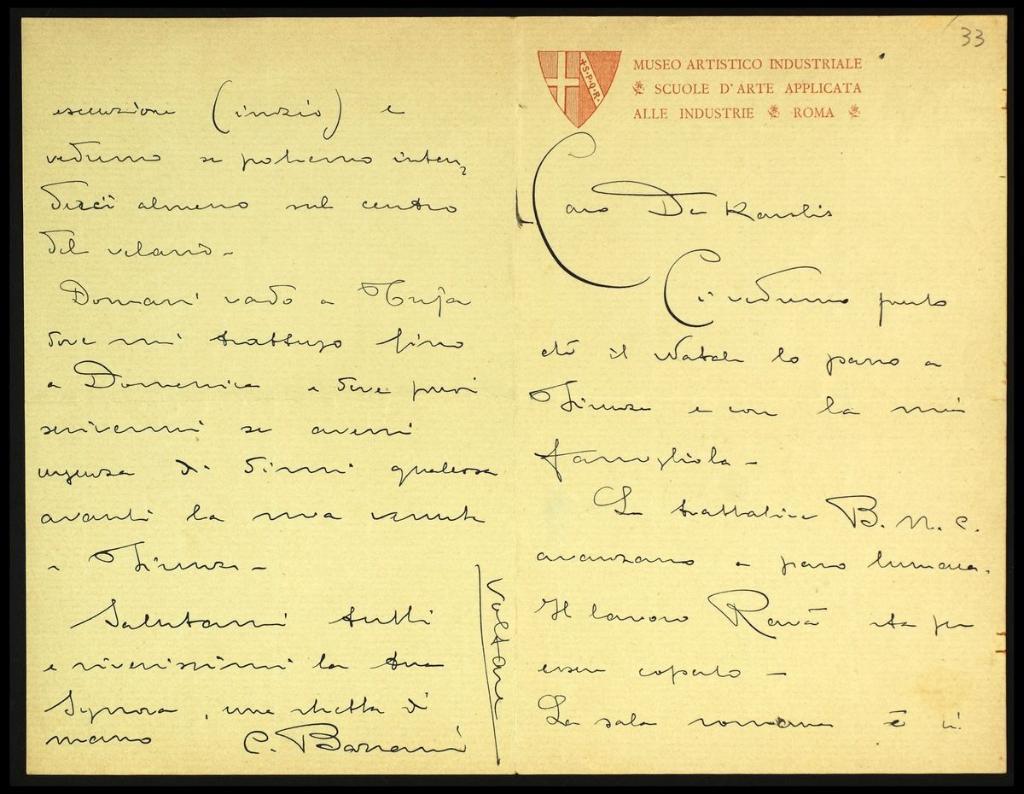 33
MUSEO ARTISTICO INDUSTRIALE
SCUOLE D'ARTE APPLICATA
ALLE INDUSTRIE ROMA
+S·P·Q·R·
Caro De Karolis
Ci vedremo presto
chè il Natale lo passo a
Firenze e con la mia
famigliola -
Le trattative B. N. C.
avanzano a passo lumaca.
Il lavoro Ravà sta per
esser coperto -
La sala romana è in
Voltare
esecuzione (inizio) e
vedremo se potremo inten,
derci almeno sul centro
del velario -
Domani vado a
dove mi trattengo fino
a Domenica e dove puoi
scrivermi se avessi
urgenza di dirmi qualcosa
avanti la mia venuta
a Firenze -
Salutami tutti
e riveriscimi la tua
Signora, una stretta di
mano C. Bazzani